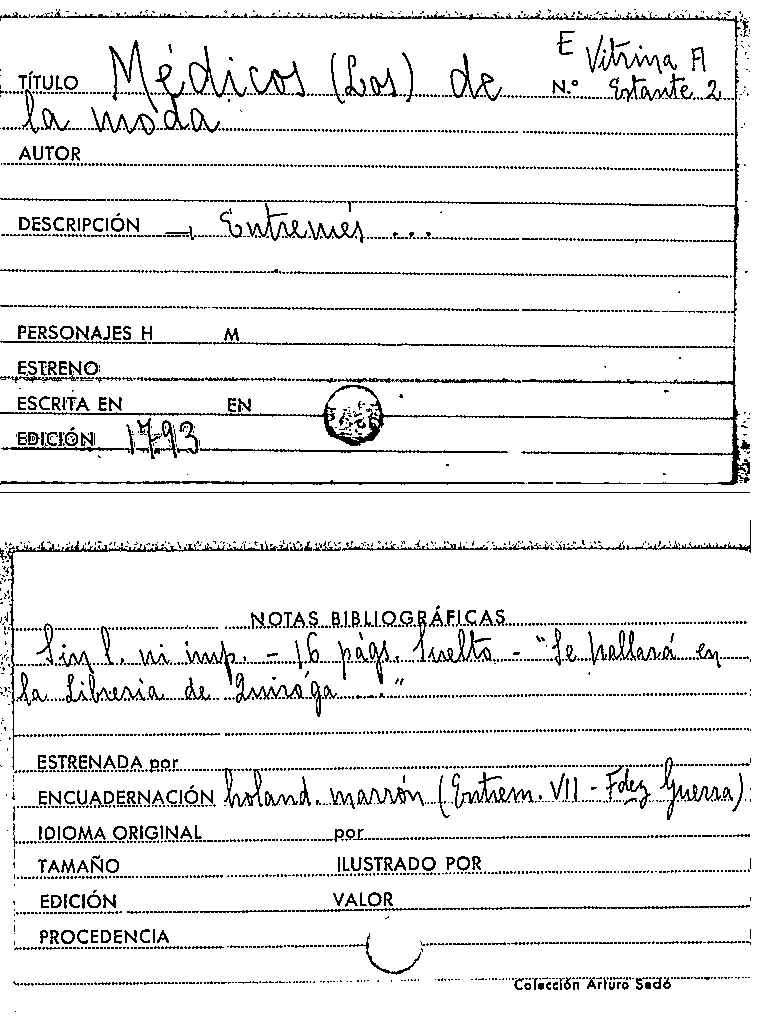 E Vitrina A
TÍTULO Médicos (Los) de N.º Estante 2
la moda
AUTOR
DESCRIPCIÓN → Entremés ...
PERSONAJES H M
ESTRENO
ESCRITA EN EN
EDICIÓN 1793
NOTAS BIBLIOGRÁFICAS
Sin l. ni imp. - 16 págs. Suelto - "Se hallará en
la Librería de Quiroga ..."
ESTRENADA por
ENCUADERNACIÓN holand. marrón (Entrem. VII - Fdez Guerra)
IDIOMA ORIGINAL por
TAMAÑO ILUSTRADO POR
EDICIÓN VALOR
PROCEDENCIA
Colección Arturo Sedó